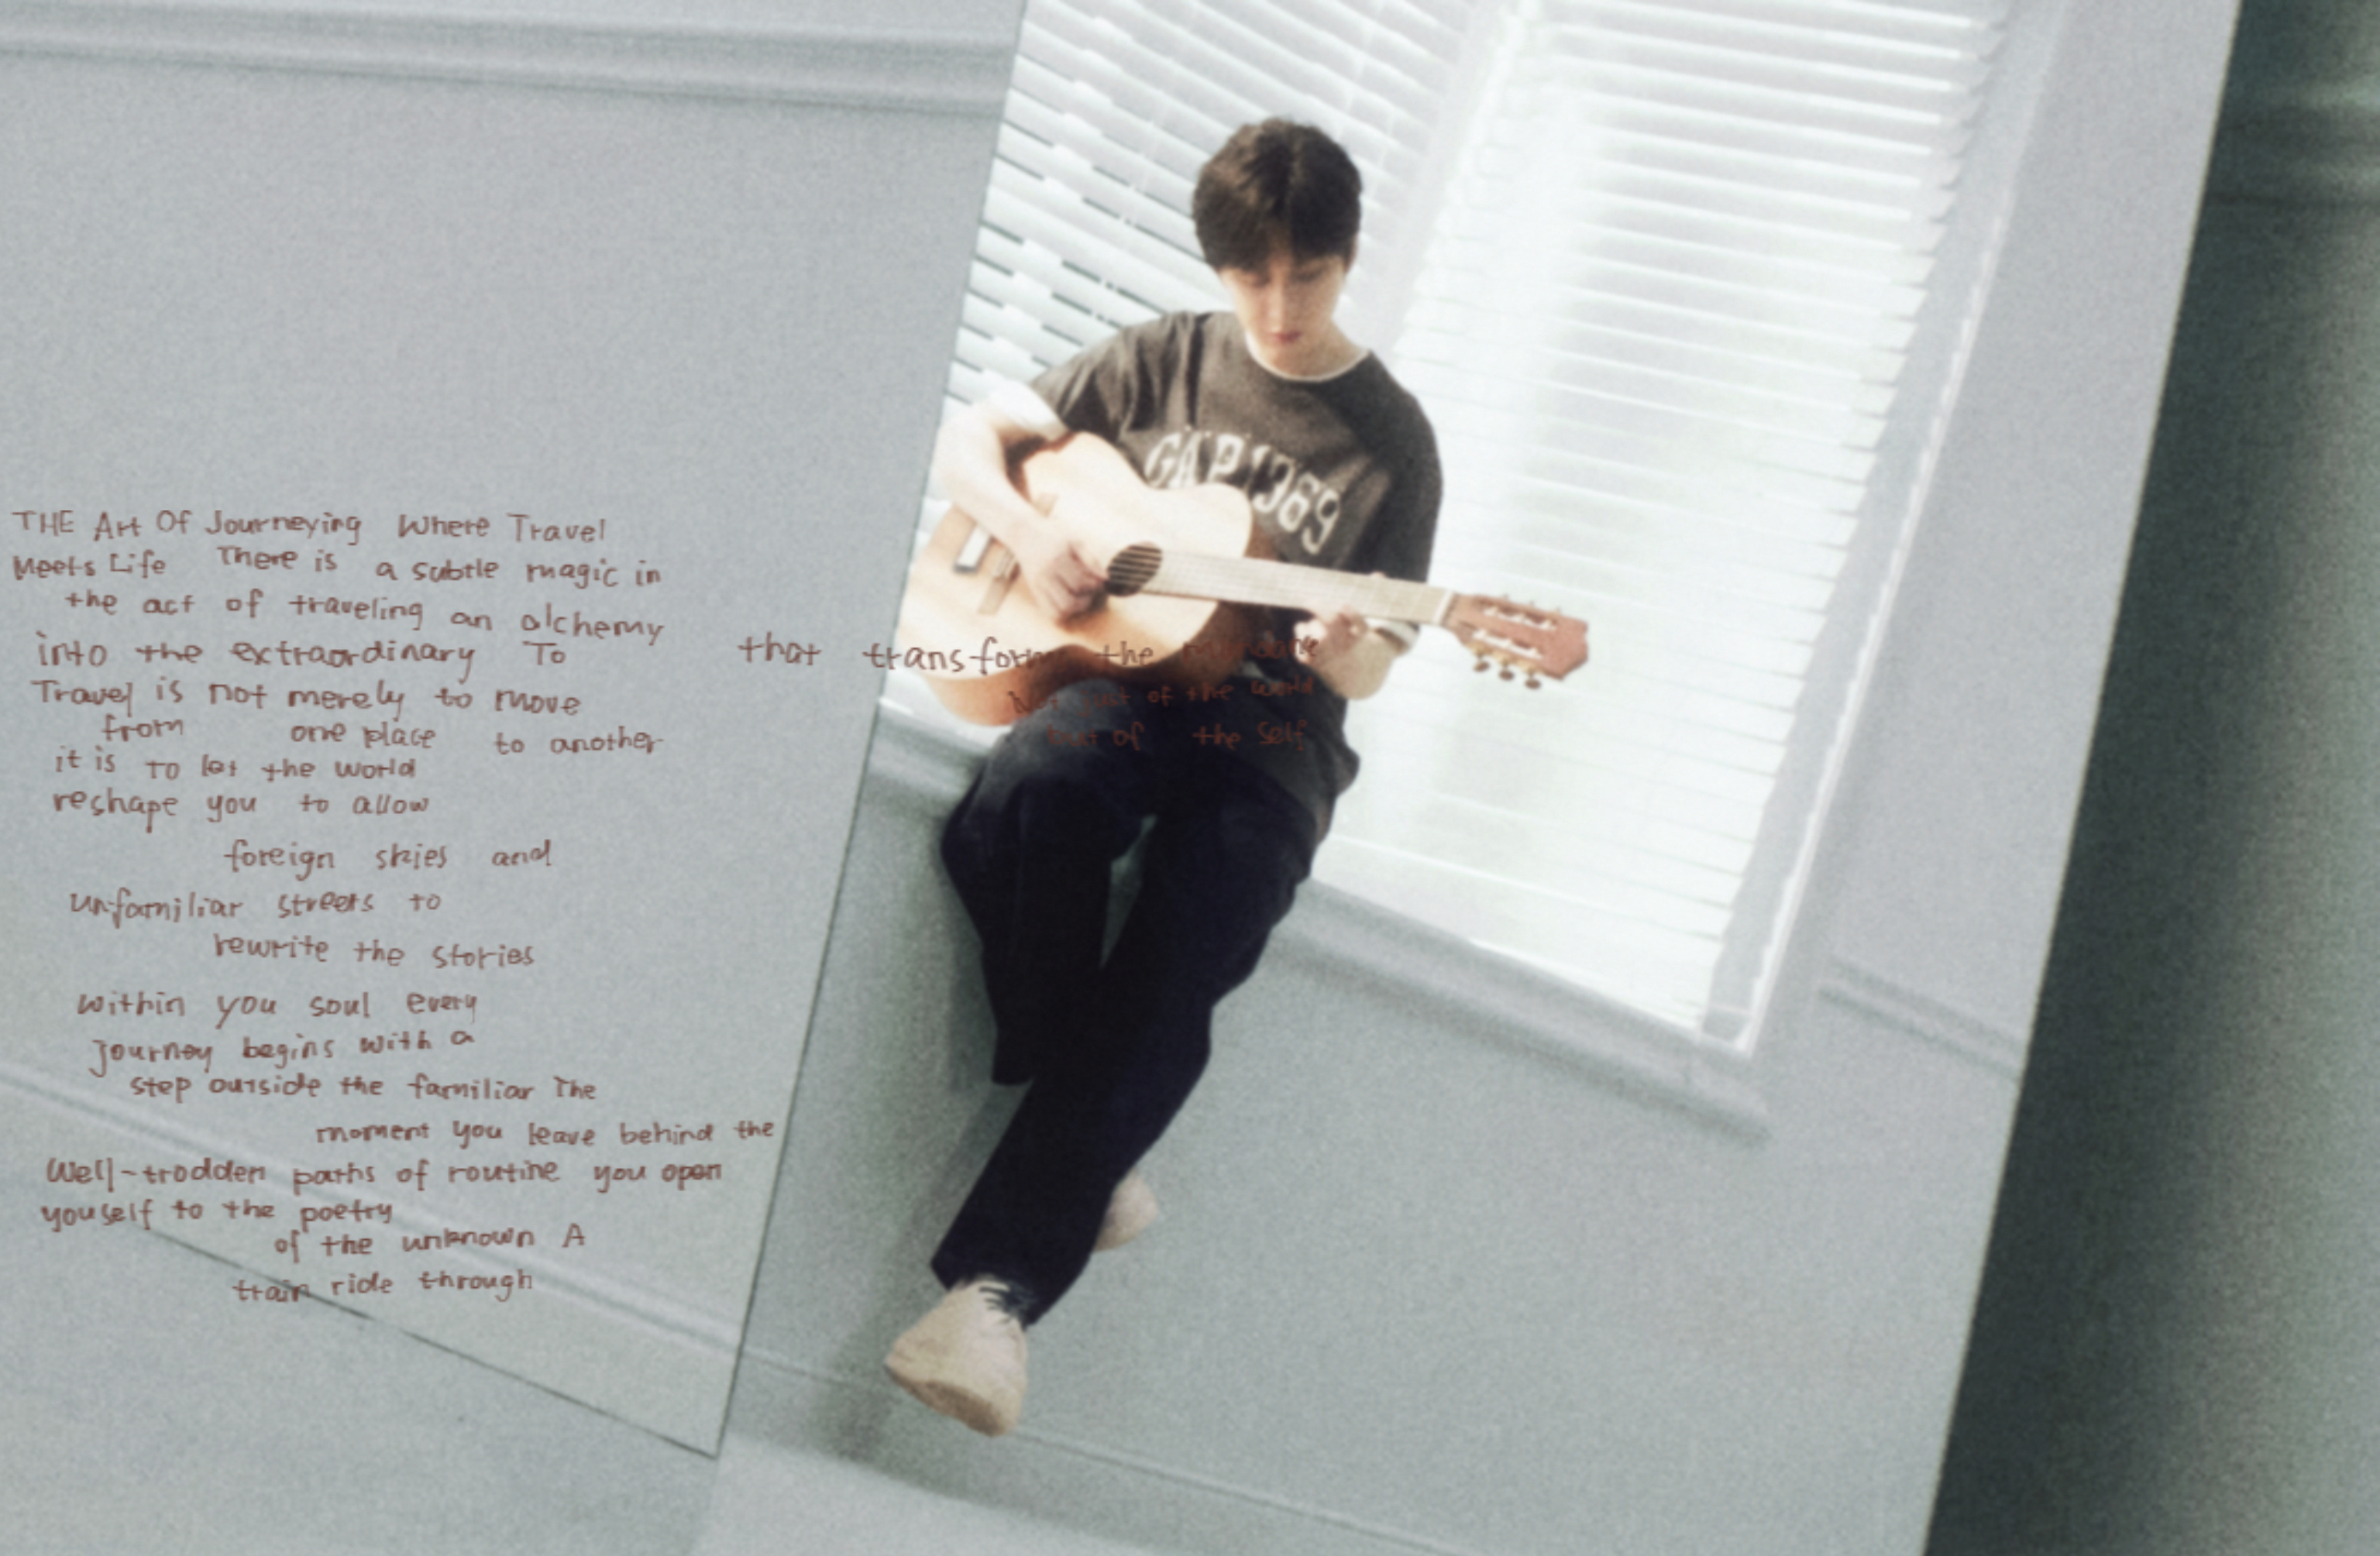 THE Art Of Journeying Where Travel
Meets Life There is a subtle magic in
the act of traveling an alchemy
into the extraordinary To
that transform the mundane
Not just of the world
but of the Self
Travel is not merely to move
from one place to another
it is To let the world
reshape you to allow
foreign skies and
unfamiliar streets to
rewrite the stories
within you soul every
Journey begins with a
step outside the familiar The
moment you leave behind the
Well-trodden paths of routine you open
youself to the poetry
of the unknown A
train ride through
GAP 1369